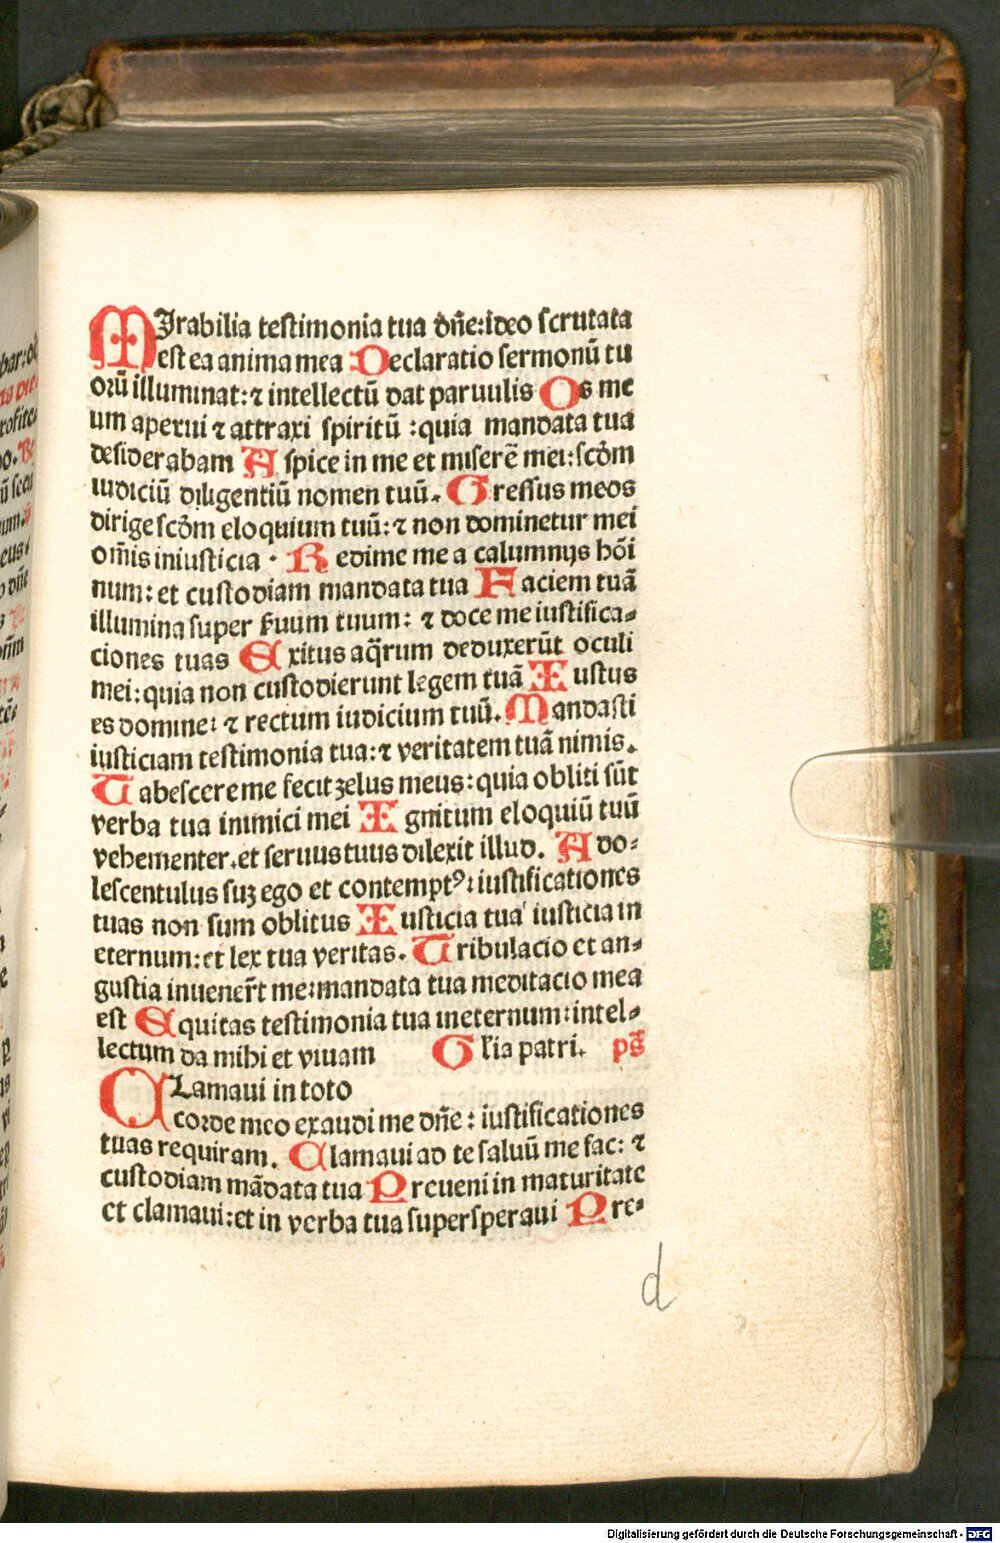 MIrabilia testimonia tua dñe: ideo scrutata
est ea anima mea Declaratio sermonū tu
orū illuminat: ⁊ intellectū dat paruulis Os me
um aperui ⁊ attraxi spiritū : quia mandata tua
desiderabam Aspice in me et miserē mei: scd̄m
iudiciū diligentiū nomen tuū. Gressus meos
dirige scd̄m eloquium tuū: ⁊ non dominetur mei
om̄is iniusticia . Redime me a calumnijs hōi
num: et custodiam mandata tua Faciem tuā
illumina super ẜuum tuum: ⁊ doce me iustifica-
ciones tuas Exitus aq̄rum deduxerūt oculi
mei: quia non custodierunt legem tuā Iustus
es domine: ⁊ rectum iudicium tuū. Mandasti
iusticiam testimonia tua: ⁊ veritatem tuā nimis.
Tabescere me fecit zelus meus: quia obliti sūt
verba tua inimici mei Ignitum eloquiū tuū
vehementer. et seruus tuus dilexit illud. Ado-
lescentulus suꝫ ego et contemptꝰ: iustificationes
tuas non sum oblitus Iusticia tua iusticia in
eternum: et lex tua veritas. Tribulacio et an-
gustia inuener̄t me: mandata tua meditacio mea
est Equitas testimonia tua in eternum: intel-
lectum da mihi et viuam Gl̄ia patri. pš
CLamaui in toto
corde meo exaudi me dñe : iustificationes
tuas requiram. Clamaui ad te saluū me fac: ⁊
custodiam mādata tua Preueni in maturitate
et clamaui: et in verba tua supersperaui Pre-
d
Digitalisierung gefördert durch die Deutsche Forschungsgemeinschaft - DFG